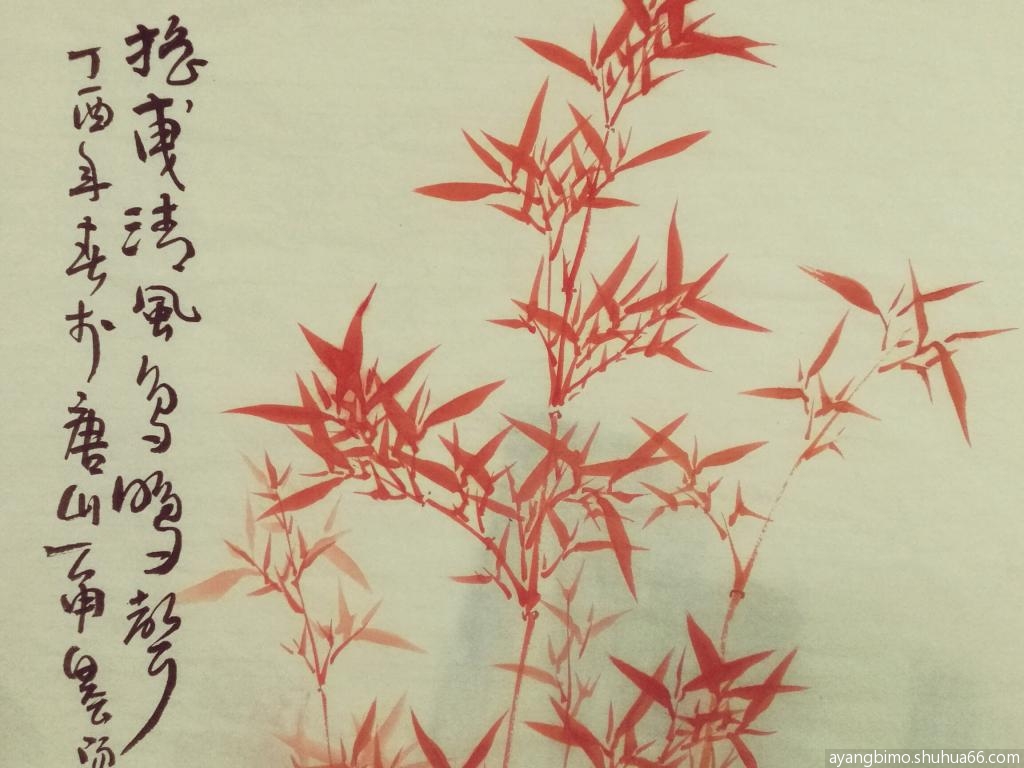 搖曳清風鳥鳴聲
丁酉年春於唐山一角墨
ayangbimo.shuhua66.com